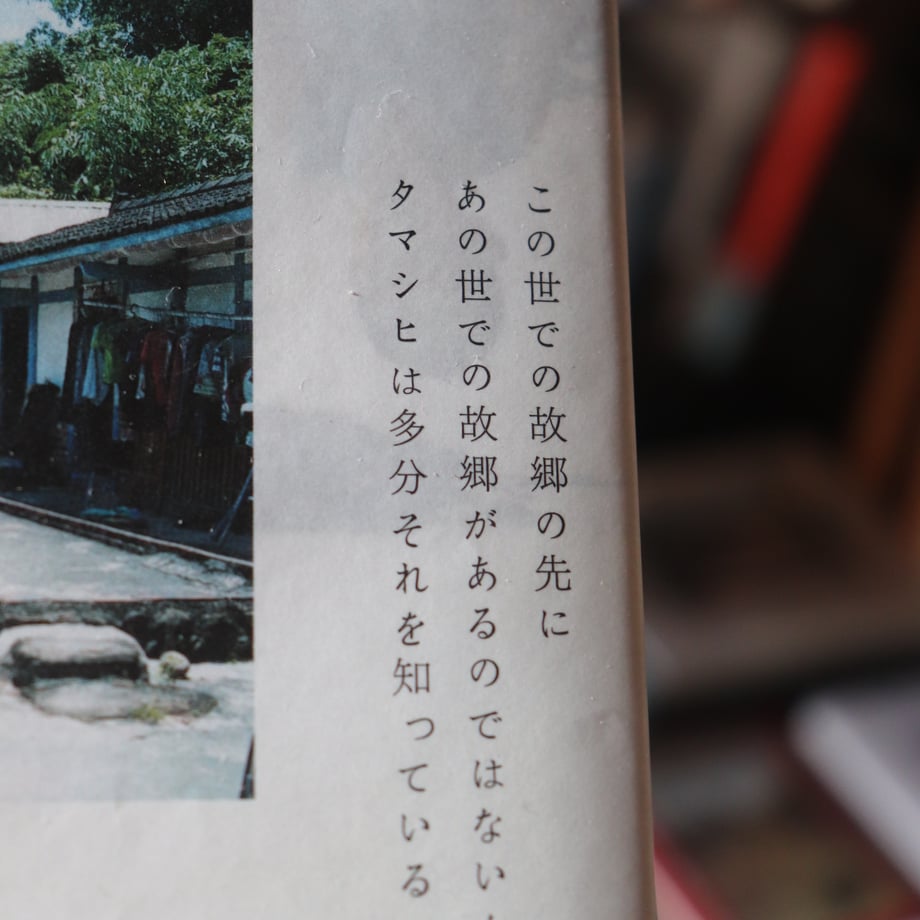 この世での故郷の先に
あの世での故郷があるのではない
タマシヒは多分それを知っている